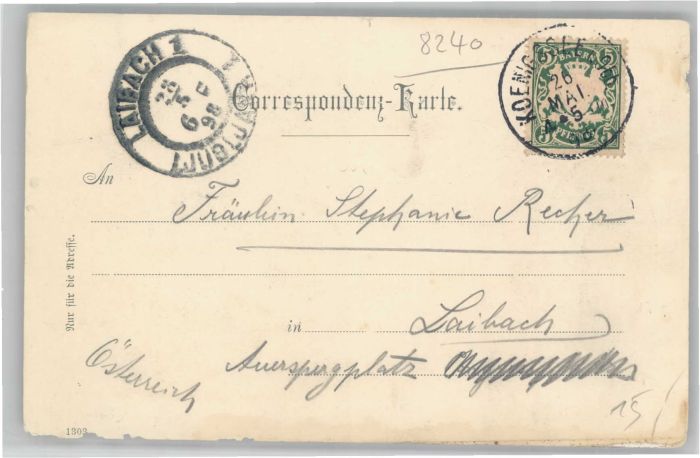 8240
LAIBACH 1
28
5
6 F
98
LJUBLJANA 1
KOENIGSSEE
26
MAI
BAYERN
5 5
PFENNIG
Correspondenz-Karte.
An
Fräulein Stephanie Recher
Nur für die Adresse.
in Laibach
Österreich Auerspergplatz
15
1303